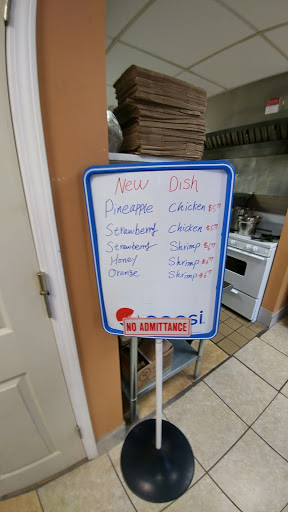 New Dish
Pineapple Chicken
Strawberry Chicken
Strawberry Shrimp
Honey Shrimp
Orange Shrimp
NO ADMITTANCE